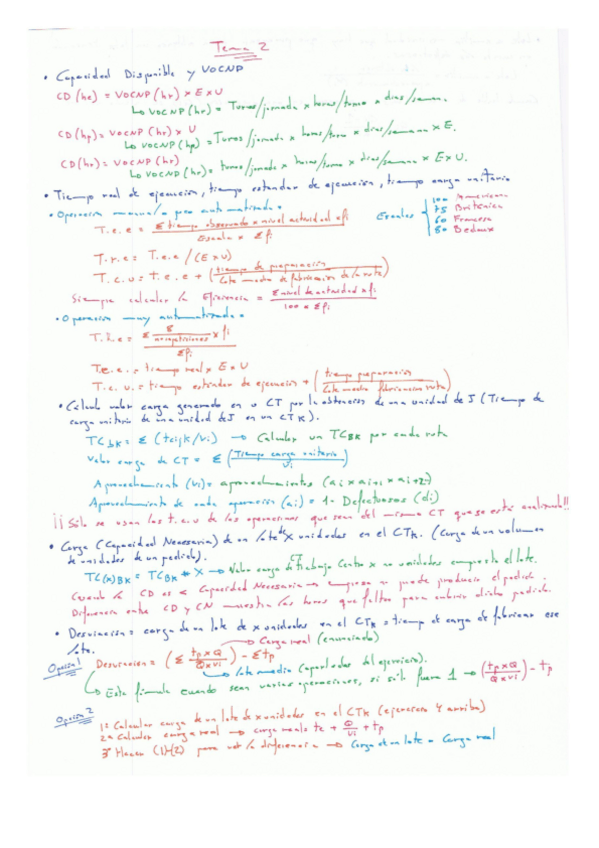 Tema 2
• Capacidad Disponible y VOCNP
CD (he) = VOCNP (hr) x E x U
↳ VOCNP (hr) = Turnos/jornada x horas/turno x días/semana.
CD (hp) = VOCNP (hr) x U
↳ VOCNP (hp) = Turnos/jornada x horas/turno x días/semana x E.
CD (hr) = VOCNP (hr)
↳ VOCNP (hr) = turnos/jornada x horas/turno x días/semana x E x U.
• Tiempo real de ejecución, tiempo estandar de ejecución, tiempo carga unitario
• Operación manual/o poco automatizada •
T.e.e = Σ tiempo observado x nivel actividad x fi / Escala x Σfi
Escalas { 100 Americana
75 Británica
60 Francesa
80 Bedaux
T.r.e = T.e.e / (E x U)
T.c.u = T.e.e + (tiempo de preparación / lote medio de fabricación de la ruta)
Siempre calcular la Eficiencia = Σ nivel de actividad x fi / 100 x Σfi
• Operación muy automatizada •
T.r.e = Σ x fi / Σfi
T.e.e. = tiempo real x E x U
T.c.u. = tiempo estándar de ejecución + (tiempo preparación / lote medio fabricación ruta)
• Cálculo valor carga generado en u CT por la obtención de una unidad de J (Tiempo de
carga unitario de una unidad de J en un CTK).
TCjK = Σ (tcijk/vi) → Calcular un TC por cada ruta
Valor carga de CT = Σ (Tiempo carga unitario / Vi)
Aprovechamiento (Vi) = aprovechamientos (ai x ai+1 x ai+2)
Aprovechamiento de cada operación (ai) = 1 - Defectuosos (di)
¡¡ Sólo se usan los t.c.u de las operaciones que sean del mismo CT que se está analizando!!
• Carga (Capacidad Necesaria) de un lote de X unidades en el CTK. (Carga de un volumen
de unidades de un pedido).
→ Valor carga de CT Trabajo Centro x no unidades compuesto el lote.
Cuando la CD es < Capacidad Necesaria → empresa no puede producir el pedido.
Diferencia entre CD y CN muestra las horas que faltan para cubrir dicho pedido.
• Desviación = carga de un lote de x unidades en el CTK - tiempo de carga de fabricar ese
lote.
→ Carga real (enunciado)
Opción 1 Desviación = (Σ tp x Q / Q x vi) - Σtp
→ lote medio (apartados del ejercicio).
↳ Esta fórmula cuando sean varias operaciones, si sólo fuera 1 → (tp x Q / Q x vi) - tp
Opción 2
1º Calcular carga de un lote de x unidades en el CTK (ejercicio 4 arriba)
2º Calcular carga real → carga real = te x Q/vi + tp
3º Hacer (1)-(2) para ver la diferencia → Carga de un lote - Carga real